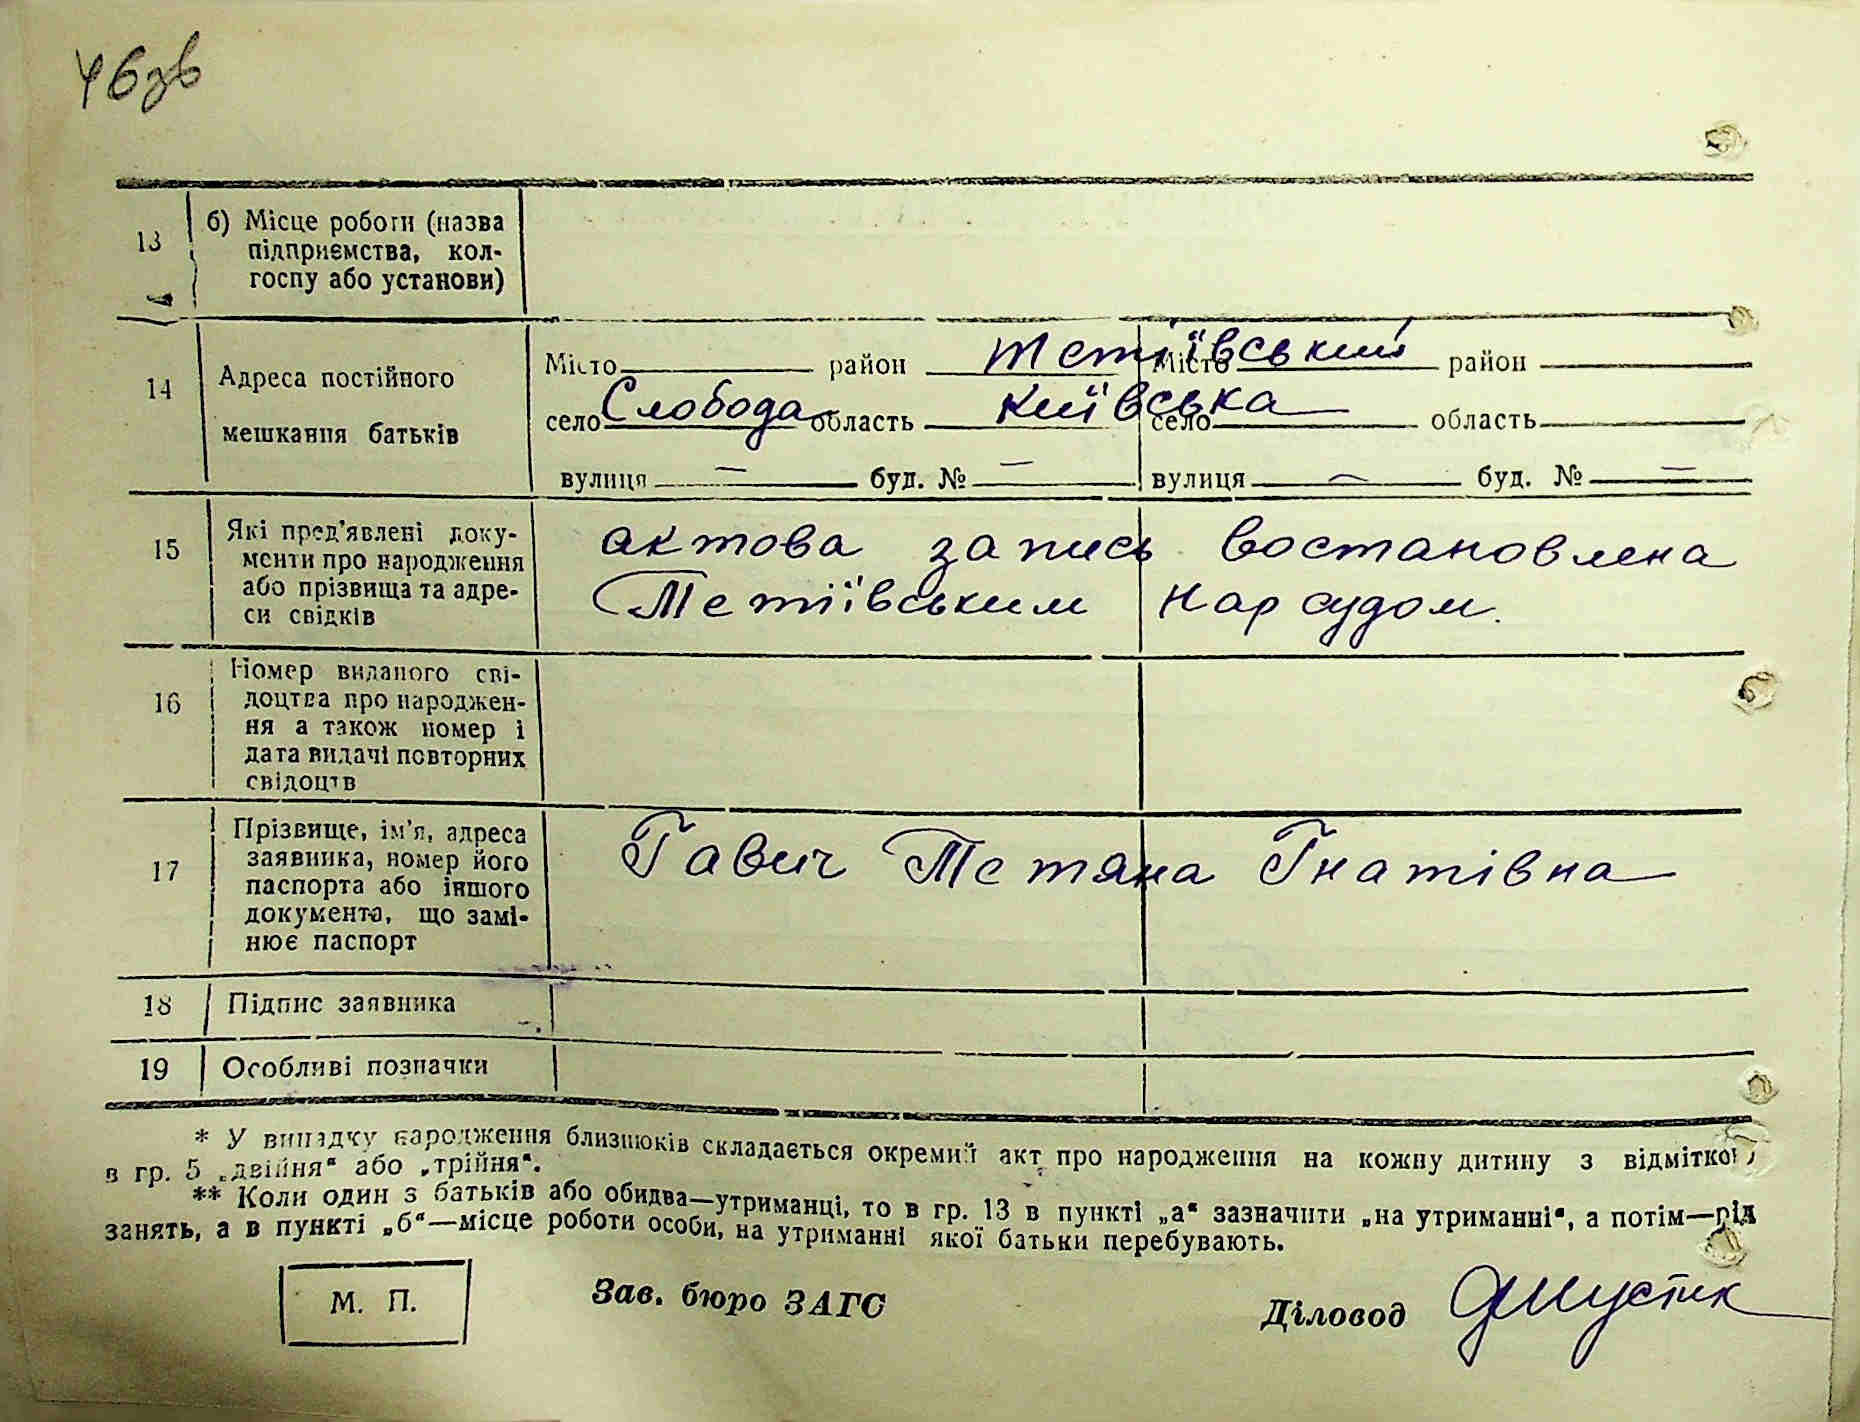 46зв
13 б) Місце роботи (назва
підприємства, кол-
госпу або установи)
14 Адреса постійного
мешкання батьків
Місто район Тетіївський Місто район
село Слобода область Київська село область
вулиця — буд. № — вулиця — буд. № —
15 Які пред'явлені доку-
менти про народження
або прізвища та адре-
си свідків
актова запись востановлена
Тетіївським Нарсудом.
16 Номер виданого сві-
доцтва про народжен-
ня а також номер і
дата видачі повторних
свідоцтв
17 Прізвище, ім'я, адреса
заявника, номер його
паспорта або іншого
документа, що замі-
нює паспорт
Гавич Тетяна Гнатівна
18 Підпис заявника
19 Особливі позначки
* У випадку народження близнюків складається окремий акт про народження на кожну дитину з відміткою
в гр. 5 „двійня" або „трійня".
** Коли один з батьків або обидва—утриманці, то в гр. 13 в пункті „а" зазначити „на утриманні", а потім—рід
занять, а в пункті „б"—місце роботи особи, на утриманні якої батьки перебувають.
М. П.
Зав. бюро ЗАГС
Діловод